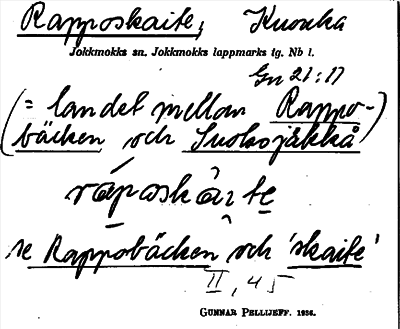 Rapposkaite, Kuouka
Jokkmokks sn, Jokkmokks lappmarks tg. Nb l.
Gn 21:17
(= landet mellan Rappo-)
bäcken och Suokojåkkå
ráposkai̭te
se Rappobäcken och 'skaite'
II, 45
GUNNAR PELLIJEFF. 1956.